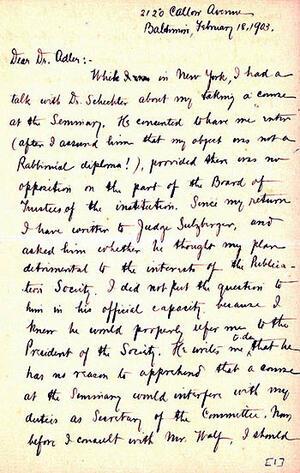 2120 Callow Avenue
Baltimore, February 18, 1903.
Dear Dr. Adler:-
While I was in New York, I had a
talk with Dr. Schechter about my taking a course
at the Seminary. He consented to have me enter
(after I assured him that my object was not a
Rabbinical diploma!), provided there was no
opposition on the part of the Board of
Trustees of the institution. Since my return
I have written to Judge Sulzberger, and
asked him whether he thought my plan
detrimental to the interests of the Publica-
tion Society. I did not put the question to
him in his official capacity, because I
knew he would properly refer me to the
President of the Society. He writes me to-day that he
has no reason to apprehend that a course
at the Seminary would interfere with my
duties as Secretary of the Committee. Now,
before I consult with Mr. Wolf, I should
[1]